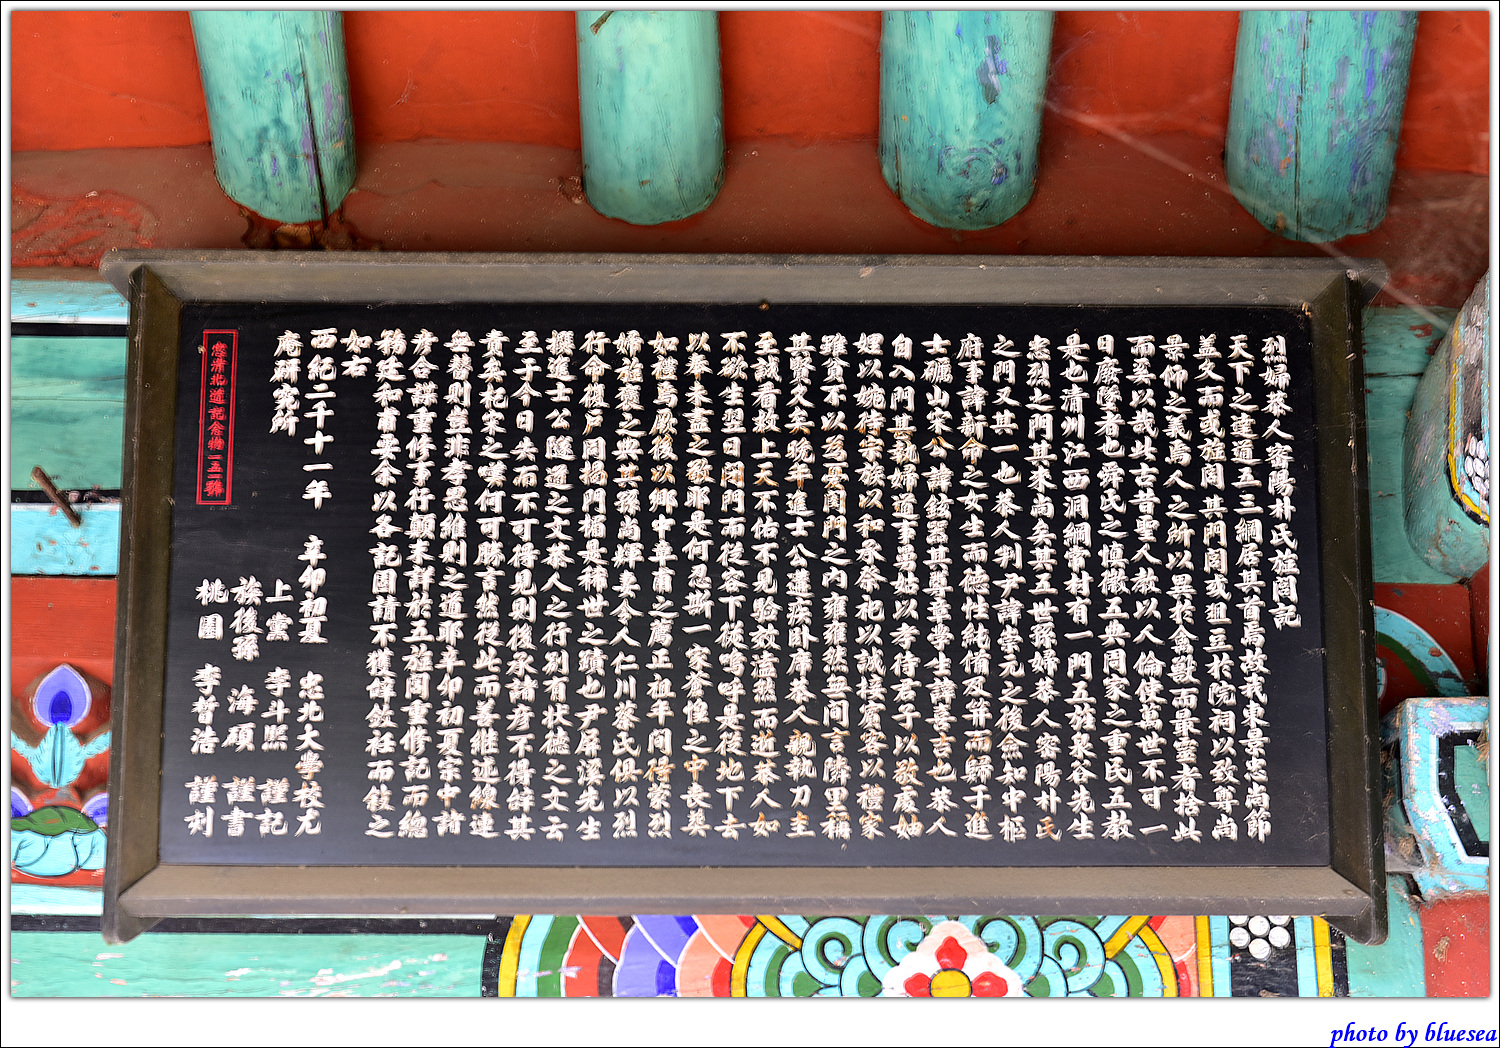 烈婦恭人密陽朴氏旌閭記
天下之達道五三綱居其首焉故哉東景忠尚節
蓋久而或旌閭其門閭或俎豆於院祠以致尊尚
景仰之義焉人之所以異於禽獸而最靈者捨此
而奚以哉此古昔聖人敎以人倫使萬世不可一
日廢墜者也舜氏之愼徽五典周家之重民五敎
是也淸州江西洞綱常村有一門五旌泉谷先生
忠烈之門其來尚矣其五世孫婦恭人密陽朴氏
之門又其一也恭人判尹諱崇元之後僉知中樞
府事諱新命之女生而德性純備及笄而歸于進
士礪山宋公諱鋐器其尊章學生諱喜吉也恭人
自入門甚執婦道事舅姑以孝待君子以敬處妯
娌以婉待宗族以和承祭祀以誠接賓客以禮家
雖貧不以爲憂閨門之內雍雍然無间言隣里稱
其賢久矣晩年進士公遘疾卧席恭人親執刀圭
至誠看救上天不佑不見驗效溘然而逝恭人如
不欲生翌日閉門而從容下從嗚呼是後地下去
以奉未盡之敬耶是何忍斯一家蒼惶之中喪葬
如禮焉厥後以鄉中章甫之薦正祖年间得蒙烈
婦旌褒之典其孫尚煇妻令人仁川蔡氏俱以烈
行命復戶同揭門楣是稀世之蹟也尹屏溪先生
撰進士公隧道之文恭人之行別有狀德之文云
至于今日失而不可得見則後承諸彦不得辭其
責矣杞宋之嘆何可勝言然從此而善維述線連
無替則豈非孝思維則之道耶辛卯初夏宗中諸
彦合謀重修事行顚末詳於五旌閭重修記而總
務廷和甫要余以各記固請不獲辭斂衽而敍之
如右
西紀二千十一年 辛卯初夏 忠北大學校尤
庵硏究所
上黨 李斗熙 謹記
族後孫 海碩 謹書
桃園 李晳浩 謹刻
忠淸北道記念物一五二號
photo by bluesea